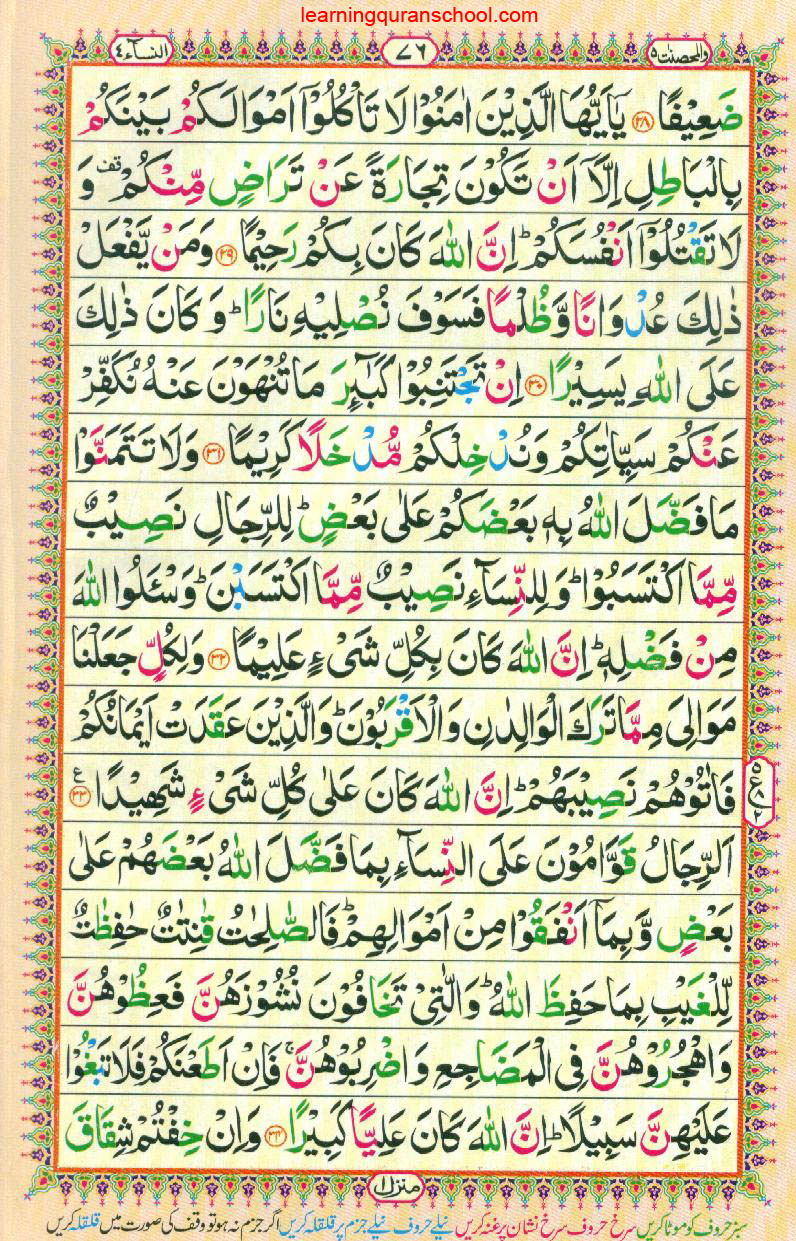 learningquranschool.com
النسآء٤
٧٦
والمحصنٰت٥
ضَعِيْفًا ﴿٢٨﴾ يٰۤاَيُّهَا الَّذِيْنَ اٰمَنُوْا لَا تَاْكُلُوْۤا اَمْوَالَكُمْ بَيْنَكُمْ
بِالْبَاطِلِ اِلَّاۤ اَنْ تَكُوْنَ تِجَارَةً عَنْ تَرَاضٍ مِّنْكُمْ قف وَ
لَا تَقْتُلُوْۤا اَنْفُسَكُمْ ؕ اِنَّ اللّٰهَ كَانَ بِكُمْ رَحِيْمًا ﴿٢٩﴾ وَمَنْ يَّفْعَلْ
ذٰلِكَ عُدْوَانًا وَّظُلْمًا فَسَوْفَ نُصْلِيْهِ نَارًا ؕ وَ كَانَ ذٰلِكَ
عَلَى اللّٰهِ يَسِيْرًا ﴿٣٠﴾ اِنْ تَجْتَنِبُوْا كَبَآئِرَ مَا تُنْهَوْنَ عَنْهُ نُكَفِّرْ
عَنْكُمْ سَيِّاٰتِكُمْ وَنُدْخِلْكُمْ مُّدْخَلًا كَرِيْمًا ﴿٣١﴾ وَلَا تَتَمَنَّوْا
مَا فَضَّلَ اللّٰهُ بِهٖ بَعْضَكُمْ عَلٰى بَعْضٍ ؕ لِلرِّجَالِ نَصِيْبٌ
مِّمَّا اكْتَسَبُوْا ؕ وَلِلنِّسَآءِ نَصِيْبٌ مِّمَّا اكْتَسَبْنَ ؕ وَسْـَٔلُوا اللّٰهَ
مِنْ فَضْلِهٖ ؕ اِنَّ اللّٰهَ كَانَ بِكُلِّ شَىْءٍ عَلِيْمًا ﴿٣٢﴾ وَلِكُلٍّ جَعَلْنَا
مَوَالِىَ مِمَّا تَرَكَ الْوَالِدٰنِ وَالْاَقْرَبُوْنَ ؕ وَالَّذِيْنَ عَقَدَتْ اَيْمَانُكُمْ
فَاٰتُوْهُمْ نَصِيْبَهُمْ ؕ اِنَّ اللّٰهَ كَانَ عَلٰى كُلِّ شَىْءٍ شَهِيْدًا ﴿٣٣﴾ ع
اَلرِّجَالُ قَوَّامُوْنَ عَلَى النِّسَآءِ بِمَا فَضَّلَ اللّٰهُ بَعْضَهُمْ عَلٰى
بَعْضٍ وَّبِمَاۤ اَنْفَقُوْا مِنْ اَمْوَالِهِمْ ؕ فَالصّٰلِحٰتُ قٰنِتٰتٌ حٰفِظٰتٌ
لِّلْغَيْبِ بِمَا حَفِظَ اللّٰهُ ؕ وَالّٰتِىْ تَخَافُوْنَ نُشُوْزَهُنَّ فَعِظُوْهُنَّ
وَاهْجُرُوْهُنَّ فِى الْمَضَاجِعِ وَاضْرِبُوْهُنَّ ۚ فَاِنْ اَطَعْنَكُمْ فَلَا تَبْغُوْا
عَلَيْهِنَّ سَبِيْلًا ؕ اِنَّ اللّٰهَ كَانَ عَلِيًّا كَبِيْرًا ﴿٣٤﴾ وَاِنْ خِفْتُمْ شِقَاقَ
منزل ١
سبز حروف کو موٹا کریں سرخ حروف سرخ نشان پر غنہ کریں نیلے حروف نیلے جزم پر قلقلہ کریں اگر جزم نہ ہو تو وقف کی صورت میں قلقلہ کریں